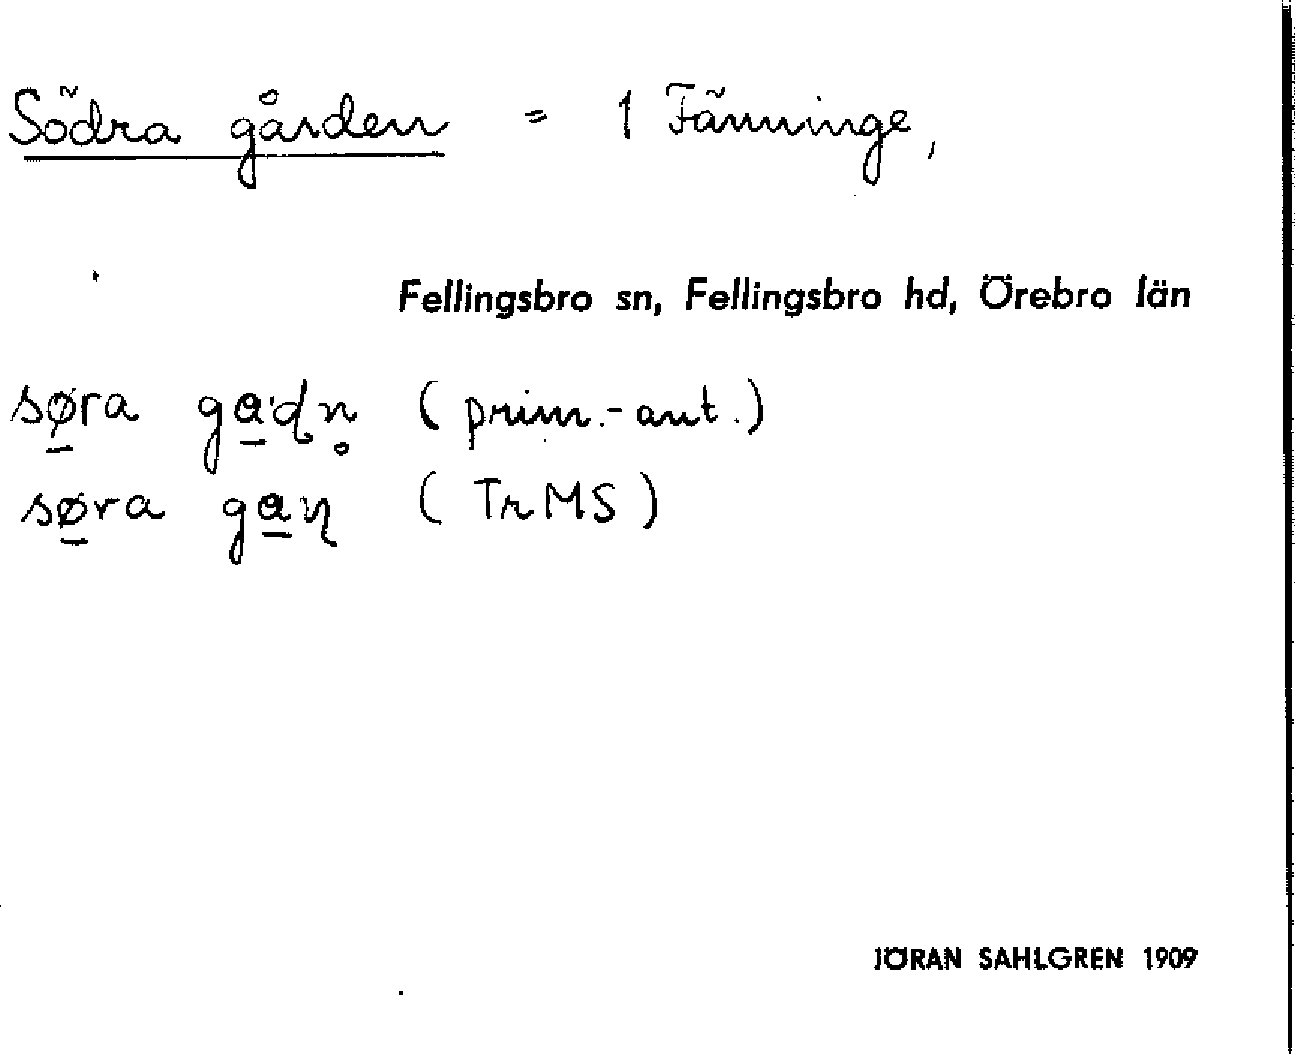 Södra gården = 1 Fänninge,
Fellingsbro sn, Fellingsbro hd, Örebro län
søra gadn̥ (prim.-ant.)
søra gaɳ (TrMS)
JÖRAN SAHLGREN 1909